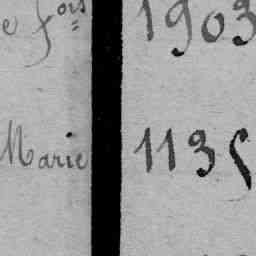 e fois 1903
Marie 1135